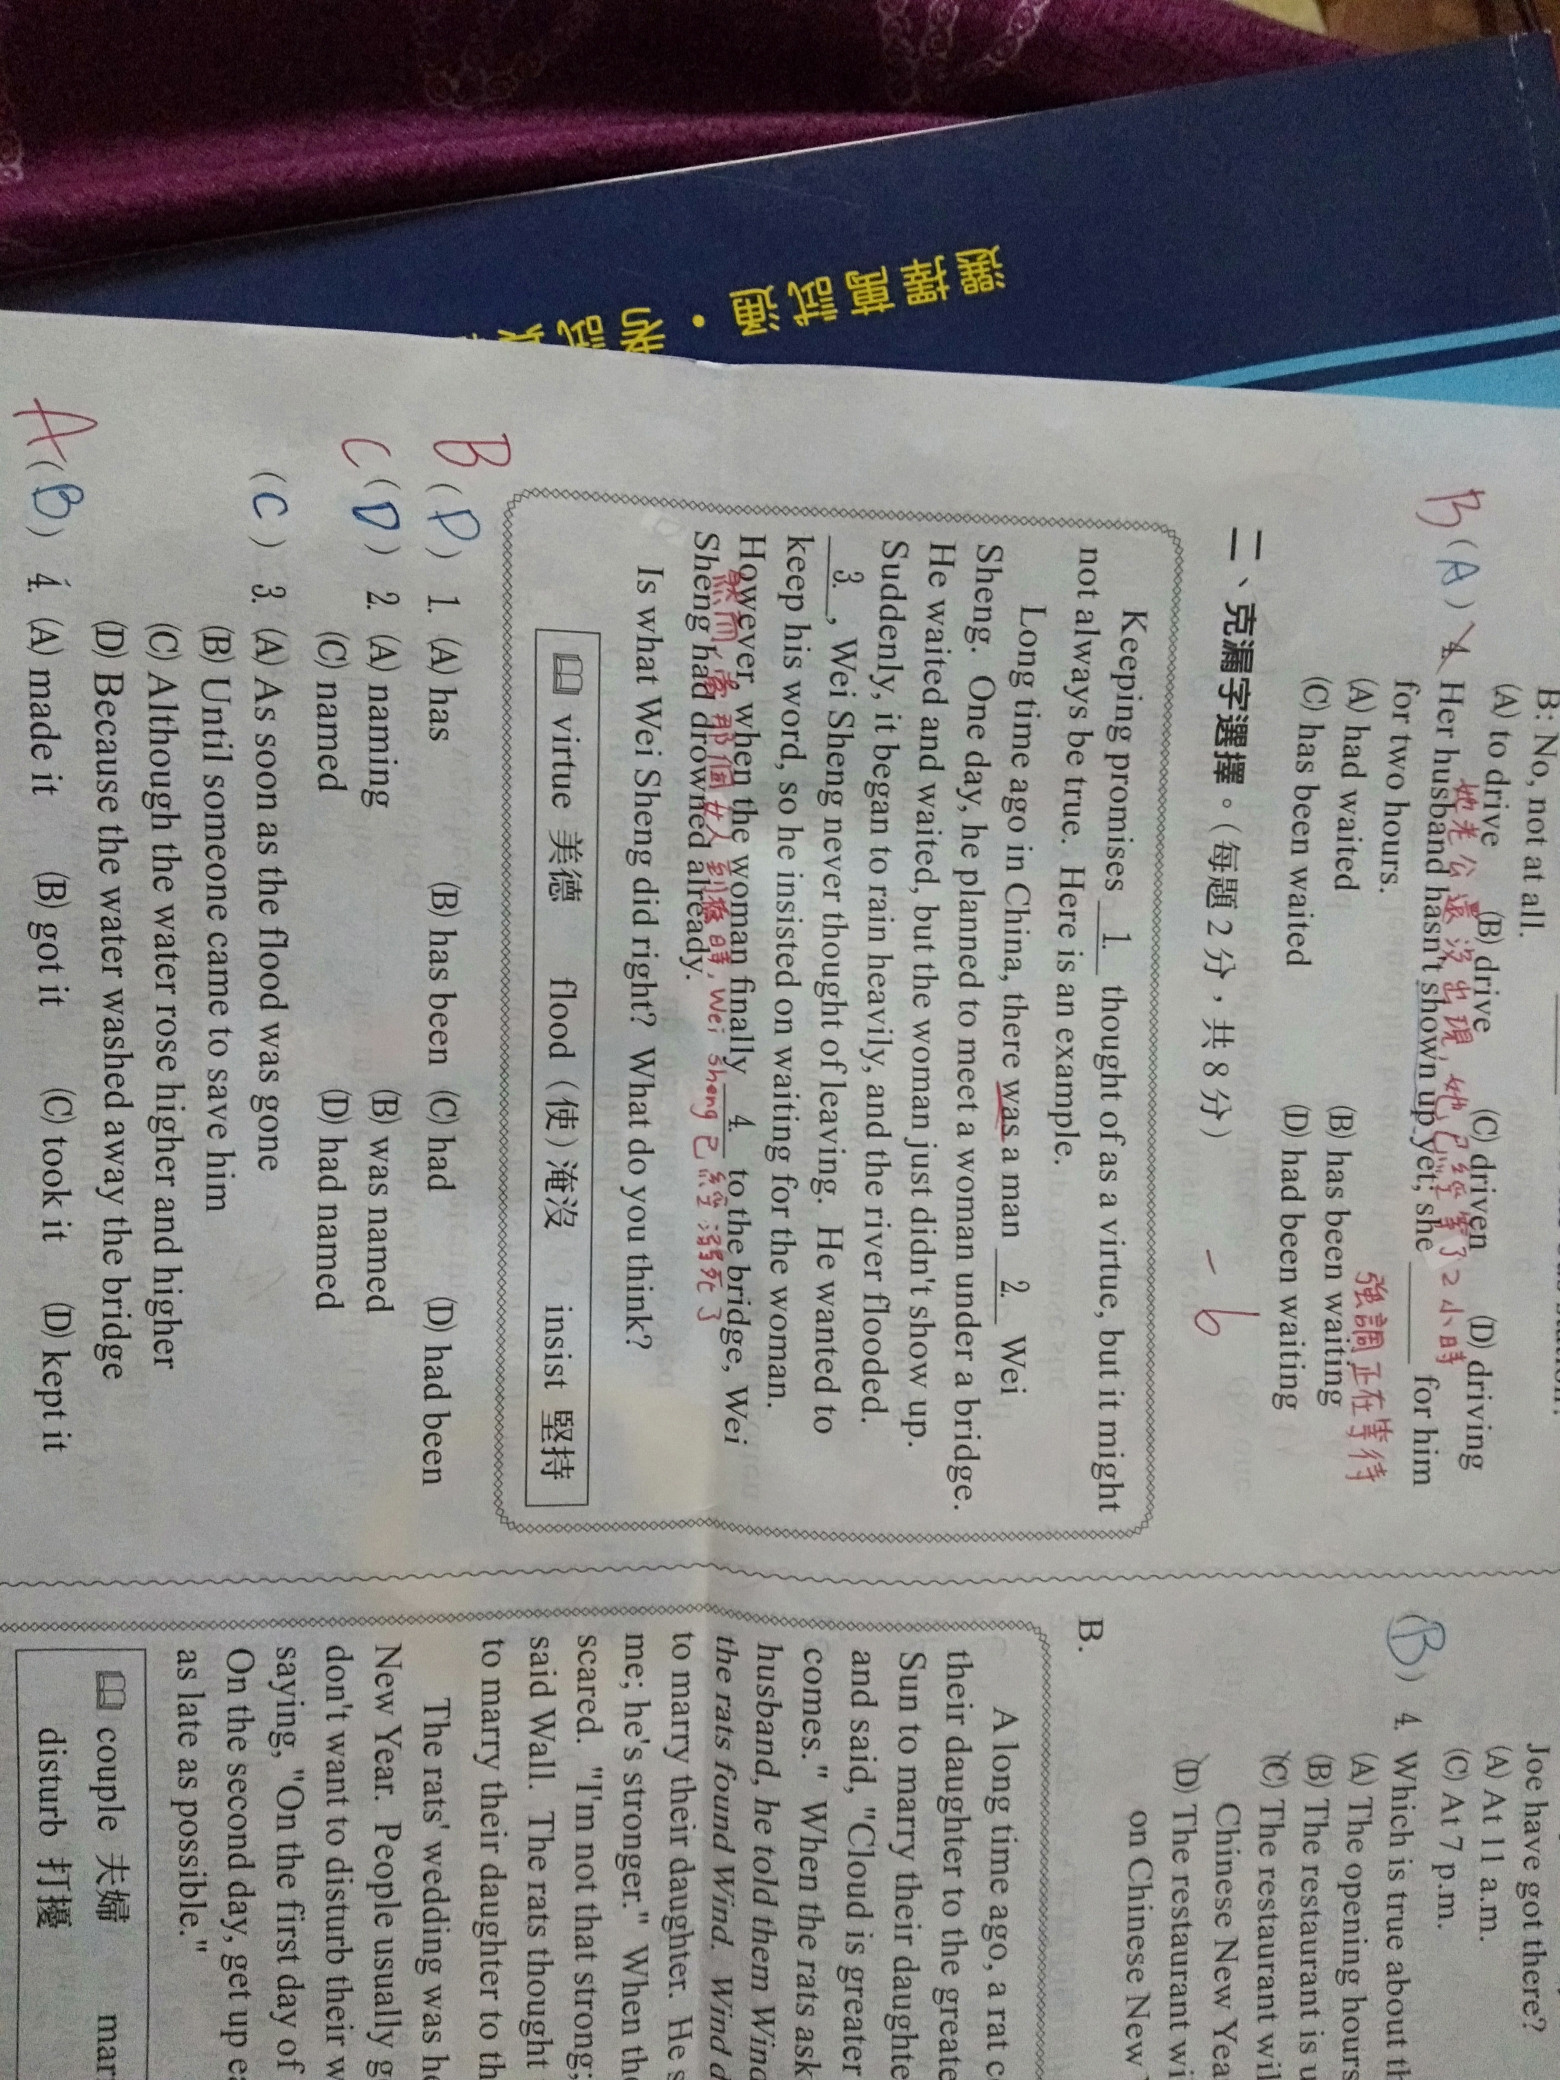 選擇題試題・
B: No, not at all.
(A) to drive (B) drive (C) driven (D) driving
她老公還沒出現，她已經等了2小時
B (A) 4. Her husband hasn't shown up yet; she ______ for him
for two hours.
強調正在等待
(A) had waited (B) has been waiting
(C) has been waited (D) had been waiting
二、克漏字選擇。（每題 2 分，共 8 分） -6
Keeping promises 1. thought of as a virtue, but it might
not always be true. Here is an example.
Long time ago in China, there was a man 2. Wei
Sheng. One day, he planned to meet a woman under a bridge.
He waited and waited, but the woman just didn't show up.
Suddenly, it began to rain heavily, and the river flooded.
3. , Wei Sheng never thought of leaving. He wanted to
keep his word, so he insisted on waiting for the woman.
However, when the woman finally 4. to the bridge, Wei
然而，當那個女人到橋時，Wei Sheng已經溺死了
Sheng had drowned already.
Is what Wei Sheng did right? What do you think?
virtue 美德 flood（使）淹沒 insist 堅持
B (D) 1. (A) has (B) has been (C) had (D) had been
C (D) 2. (A) naming (B) was named
(C) named (D) had named
(C) 3. (A) As soon as the flood was gone
(B) Until someone came to save him
(C) Although the water rose higher and higher
(D) Because the water washed away the bridge
A (B) 4. (A) made it (B) got it (C) took it (D) kept it
Joe have got there?
(A) At 11 a.m.
(C) At 7 p.m.
(B) 4. Which is true about
(A) The opening hours
(B) The restaurant is
(C) The restaurant
Chinese New
(D) The restaurant
on Chinese New
B.
A long time ago, a rat
their daughter to the
Sun to marry their
and said, "Cloud is greater
comes." When the rats
husband, he told them
the rats found Wind. Wind
to marry their daughter. He
me; he's stronger." When
scared. "I'm not that strong;
said Wall. The rats thought
to marry their daughter to
The rats' wedding was
New Year. People usually
don't want to disturb their
saying, "On the first day of
On the second day, get up
as late as possible."
couple 夫婦
disturb 打擾